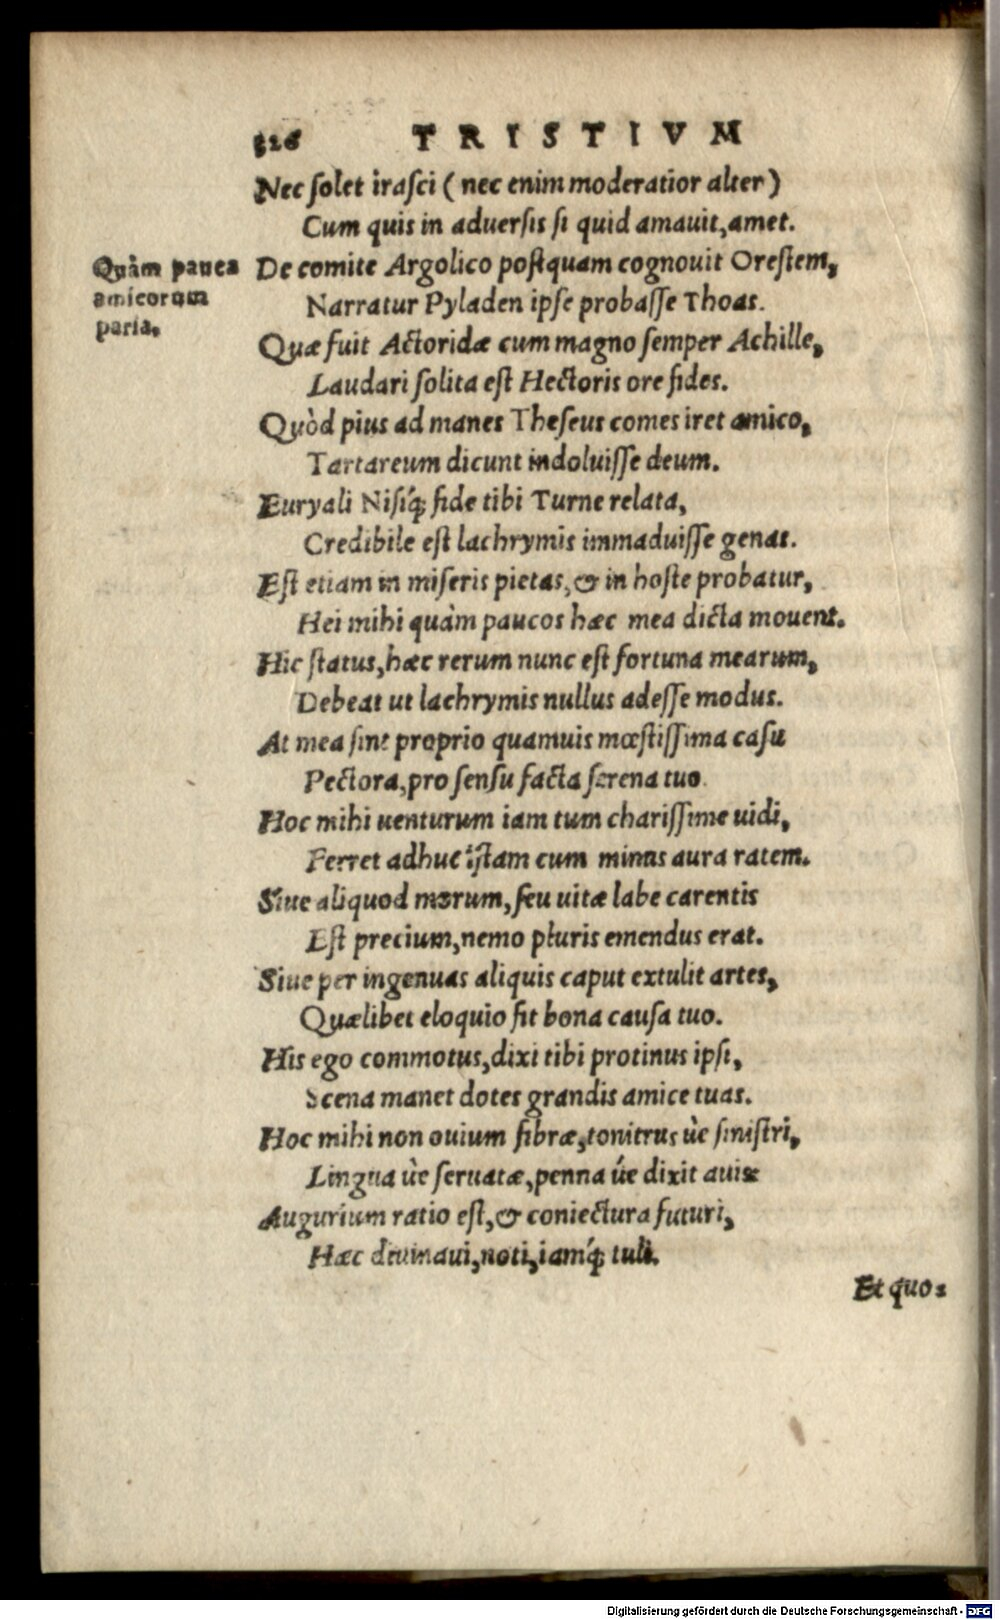 326 TRISTIVM
Nec ſolet iraſci ( nec enim moderatior alter )
Cum quis in aduerſis ſi quid amauit, amet.
Quàm pauca
amicorum
paria.
De comite Argolico poſtquam cognouit Oreſtem,
Narratur Pyladen ipſe probaſſe Thoas.
Quæ fuit Actoridæ cum magno ſemper Achille,
Laudari ſolita eſt Hectoris ore fides.
Quòd pius ad manes Theſeus comes iret amico,
Tartareum dicunt indoluiſſe deum.
Euryali Niſiq́; fide tibi Turne relata,
Credibile eſt lachrymis immaduiſſe genas.
Eſt etiam in miſeris pietas, & in hoſte probatur,
Hei mihi quàm paucos hæc mea dicta mouent.
Hic ſtatus, hæc rerum nunc eſt fortuna mearum,
Debeat ut lachrymis nullus adeſſe modus.
At mea ſint proprio quamuis mœſtiſſima caſu
Pectora, pro ſenſu facta ſerena tuo.
Hoc mihi uenturum iam tum chariſſime uidi,
Ferret adhuc iſtam cum minus aura ratem.
Siue aliquod morum, ſeu uitæ labe carentis
Eſt precium, nemo pluris emendus erat.
Siue per ingenuas aliquis caput extulit artes,
Quælibet eloquio fit bona cauſa tuo.
His ego commotus, dixi tibi protinus ipſi,
Scena manet dotes grandis amice tuas.
Hoc mihi non ouium fibræ, tonitrus ùe ſiniſtri,
Lingua ùe ſeruatæ, penna úe dixit auis
Augurium ratio eſt, & coniectura futuri,
Hæc diuinaui, noti, iamq́; tuli.
Et quo=
Digitalisierung gefördert durch die Deutsche Forschungsgemeinschaft - DFG